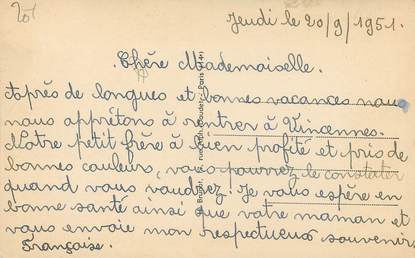 201
Jeudi le 20/9/1951.
Chère Mademoiselle.
Après de longues et bonnes vacances nous
nous apprêtons à rentrer à Vincennes.
Notre petit frère à bien profité et pris de
bonnes couleurs, vous pourrez le constater
quand vous voudrez. Je vous espère en
bonne santé ainsi que votre maman et
vous envoie mon respectueux souvenir
Française.